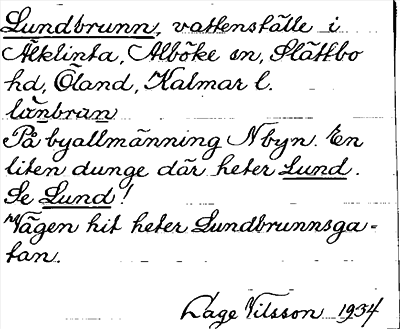 Lundbrunn, vattenställe i
Älklinta, Alböke sn, Slättbo
hd, Öland, Kalmar l.
lönbran
På byallmänning N byn. En
liten dunge där heter Lund.
Se Lund!
Vägen hit heter Lundbrunnsga-
tan.
Lage Nilsson 1934